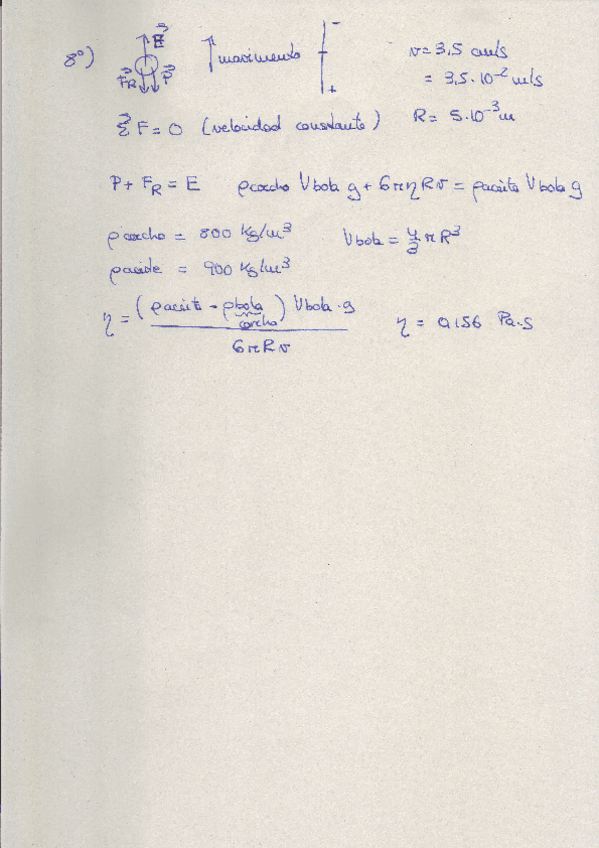 8º) E⃗ F⃗R P⃗ ↑ movimiento - + v = 3,5 cm/s
= 3,5·10⁻² m/s
Σ⃗F = 0 (velocidad constante) R = 5·10⁻³ m
P + FR = E ρcorcho Vbola g + 6πηRv = ρaceite Vbola g
ρcorcho = 800 kg/m³ Vbola = 4/3 πR³
ρaceite = 900 kg/m³
η = (ρaceite - ρbola corcho) Vbola·g / 6πRv η = 0,156 Pa·s